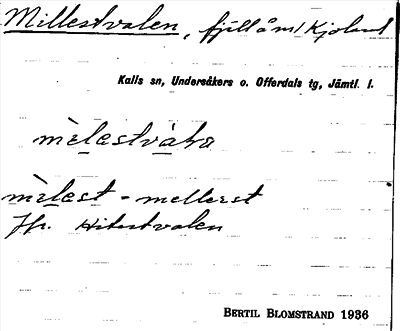 Millestvalen, fjäll åml Kjoland
Kalls sn, Undersåkers o. Offerdals tg, Jämtl. l.
mèlestvàha
mèlest - mellerst
Jfr. Hitestvalen
BERTIL BLOMSTRAND 1936